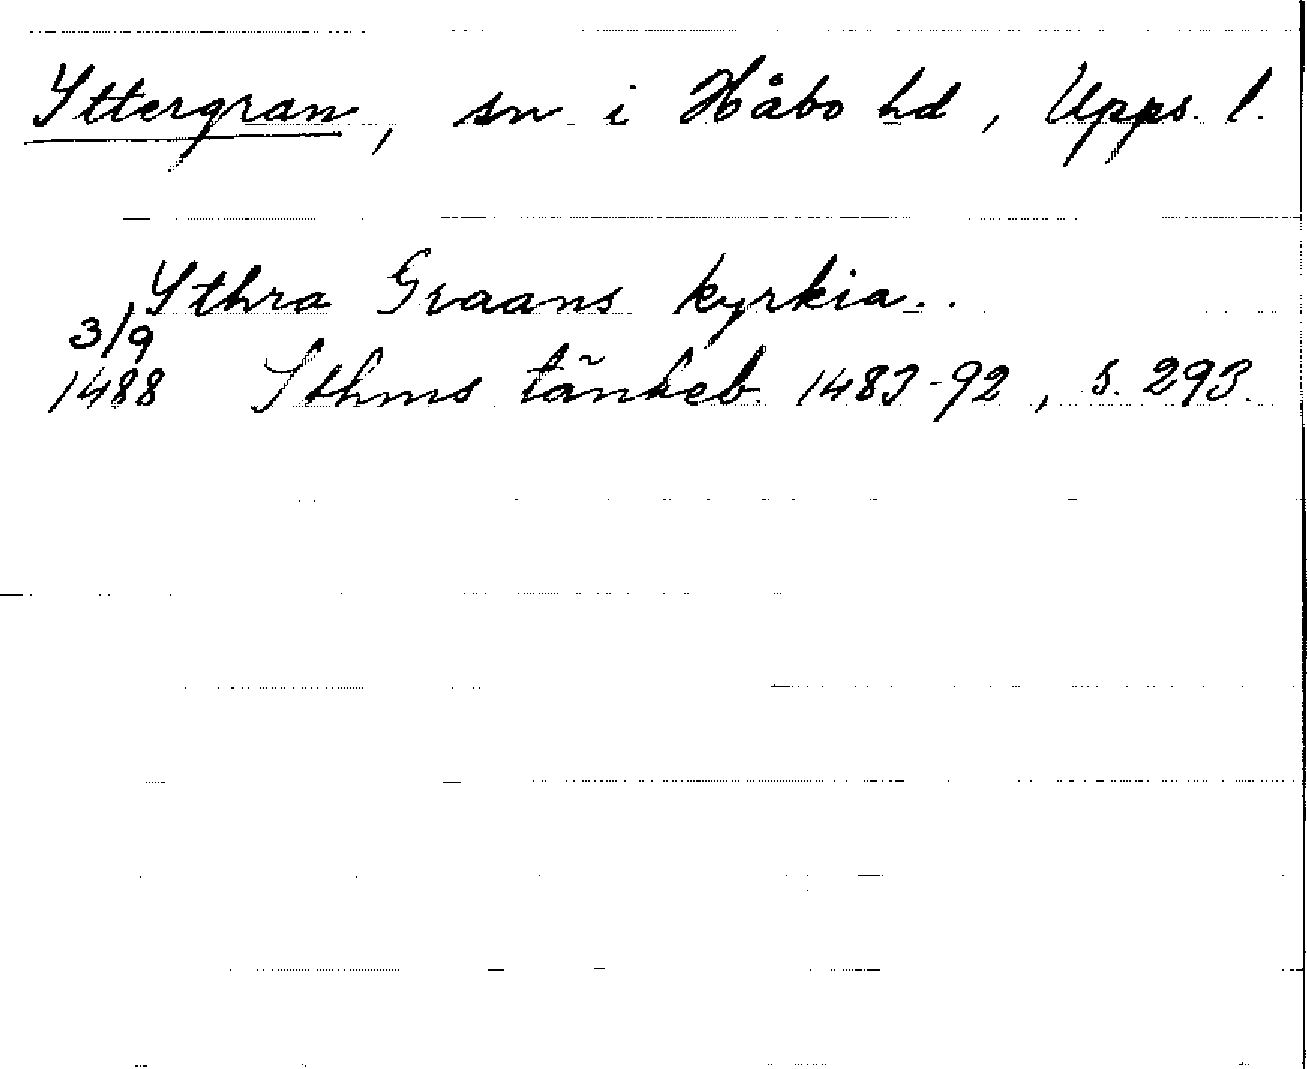 Yttergran, sn i Håbo hd, Upps. l.
Ythra Graans kyrkia..
3/9
1488 Sthms tänkeb. 1483-92, s. 293.